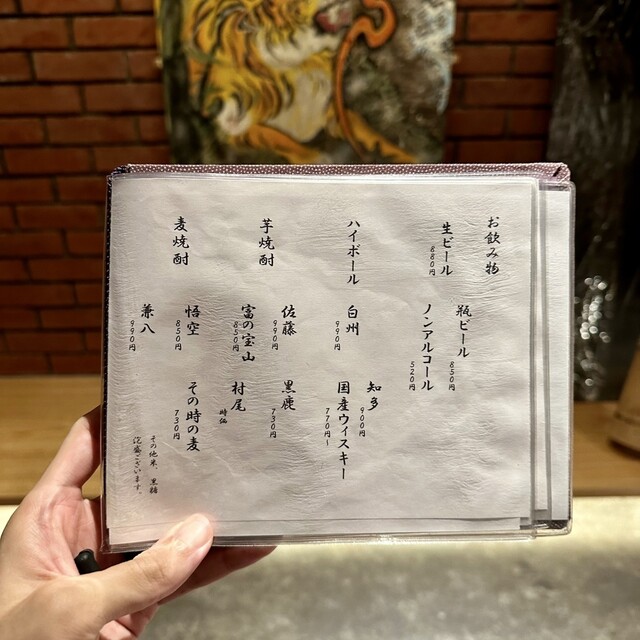 お飲み物
生ビール
880円
瓶ビール
850円
ノンアルコール
520円
ハイボール
白州
990円
知多
900円
国産ウィスキー
770円〜
芋焼酎
佐藤
990円
黒鹿
730円
富の宝山
850円
村尾
時価
麦焼酎
悟空
850円
その時の麦
730円
兼八
990円
その他米、黒糖
泡盛ございます。